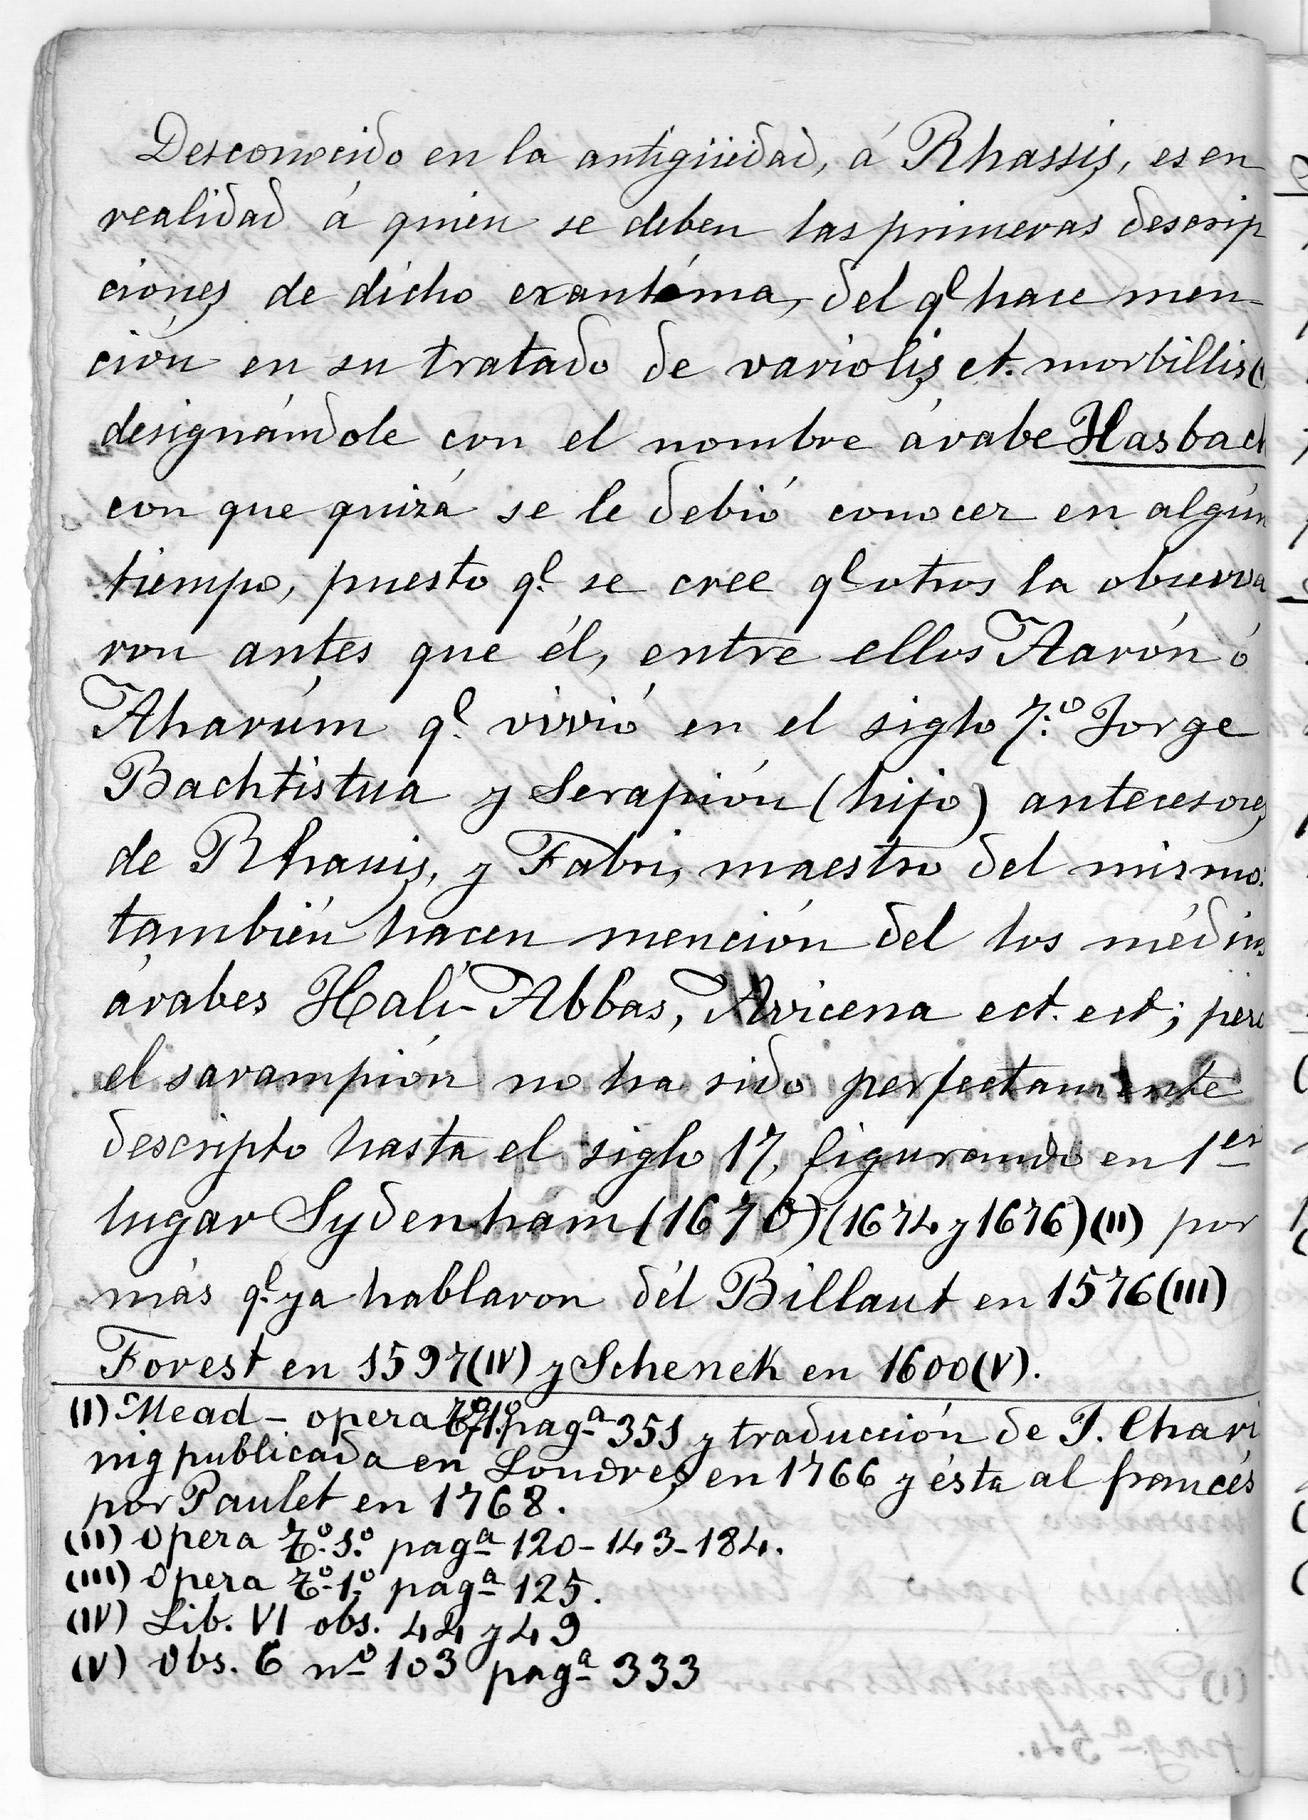 Desconocido en la antigüedad, á Rhassis, es en
realidad á quien se deben las primeras descrip
ciones de dicho exantéma, del q.l hace men-
ción en su tratado de variolis et. morbillis (I
designándole con el nombre árabe Hasbach
con que quizá se le debió conocer en algún
tiempo, puesto q.l se cree q.l otros la observa
ron antes que él, entre ellos Aarón ó
Aharúm q.l vivvió en el siglo 7.º Jorge
Bachtistua y Serapión (hijo) antecesores
de Rhassis, y Fabri, maestro del mismo:
también hacen mención del los médicos
árabes Halí-Abbas, Avicena ect. ect; pero
el sarampión no ha sido perfectamente
descripto hasta el siglo 17, figurando en 1er
lugar Sydenham (1670) (1674 y 1676) (II) por
más q.l ya hablaron dél Billaut en 1576 (III)
Forest en 1597 (IV) y Schenek en 1600 (V).
(I) Mead - opera 1.º pag.a 351 y traducción de T. Chari
nig publicada en Londres en 1766 y ésta al francés
por Paulet en 1768.
(II) Opera T.º 1.º pag.a 120-143-184.
(III) Opera T.º 1.º pag.a 125.
(IV) Lib. VI obs. 44 y 49
(V) Obs. 6 nº 103 pag.a 333